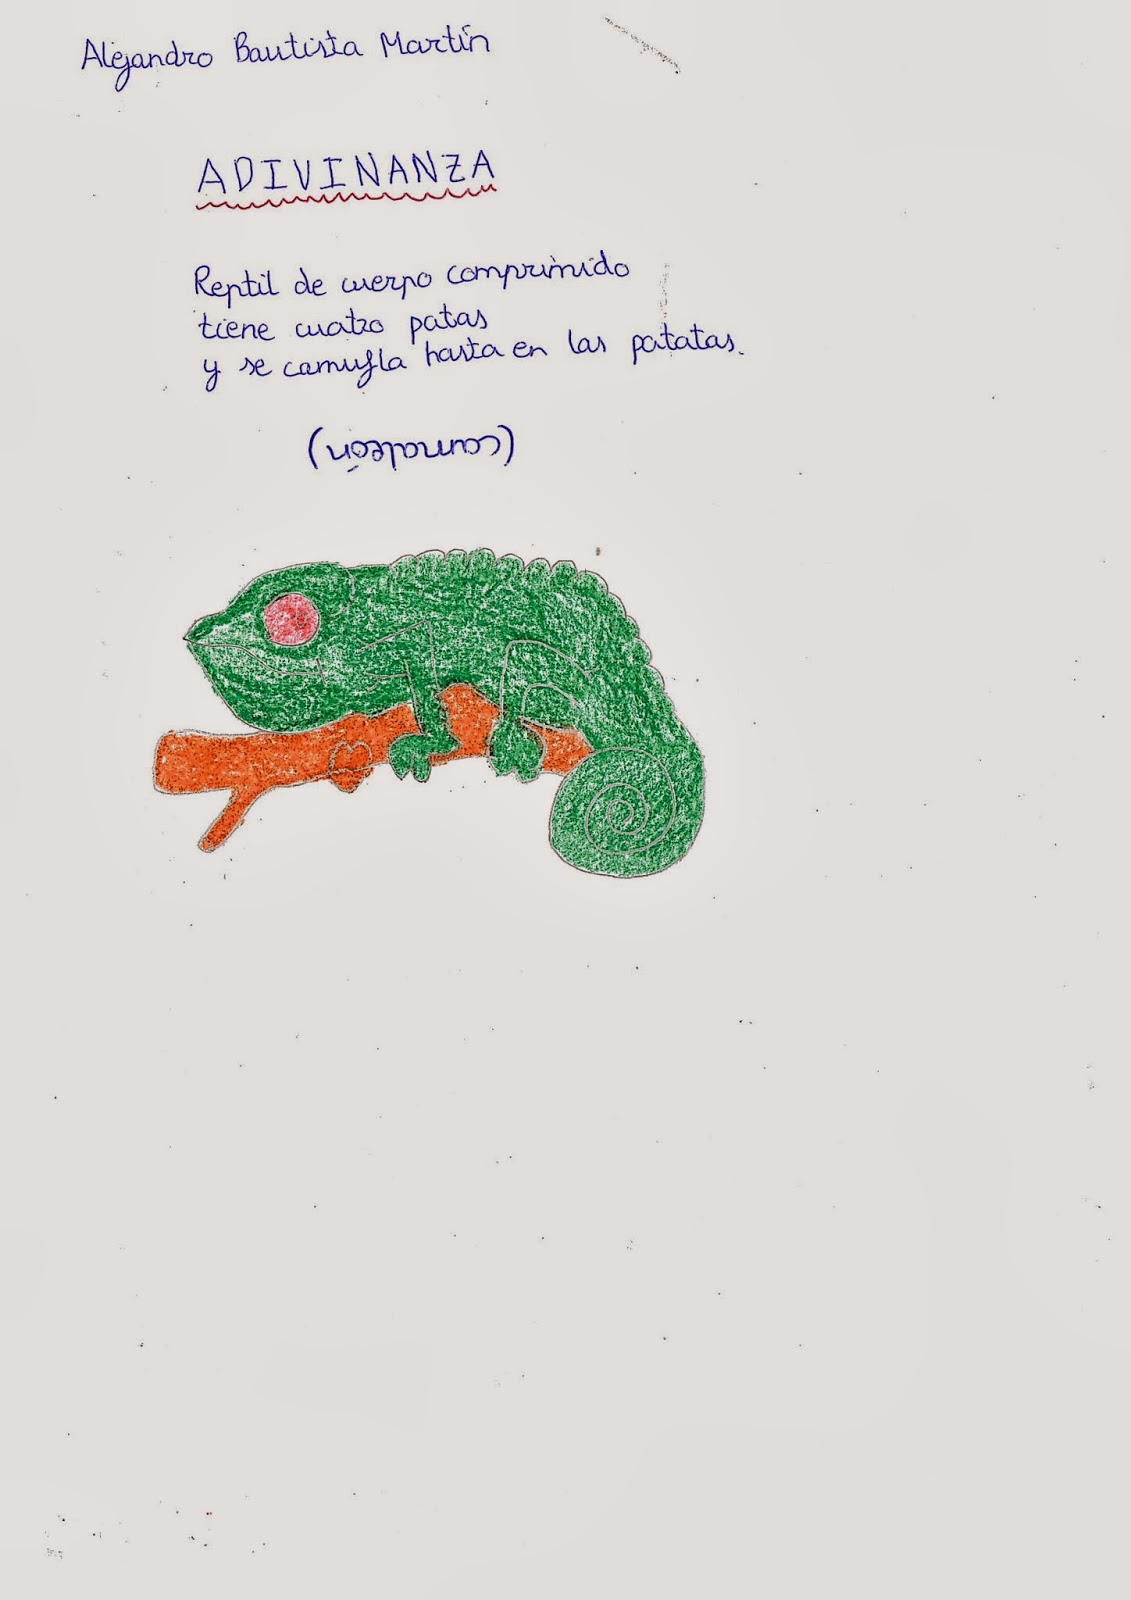 Alejandro Bautista Martín
ADIVINANZA
Reptil de cuerpo comprimido
tiene cuatro patas
y se camufla hasta en las patatas.
(camaleón)